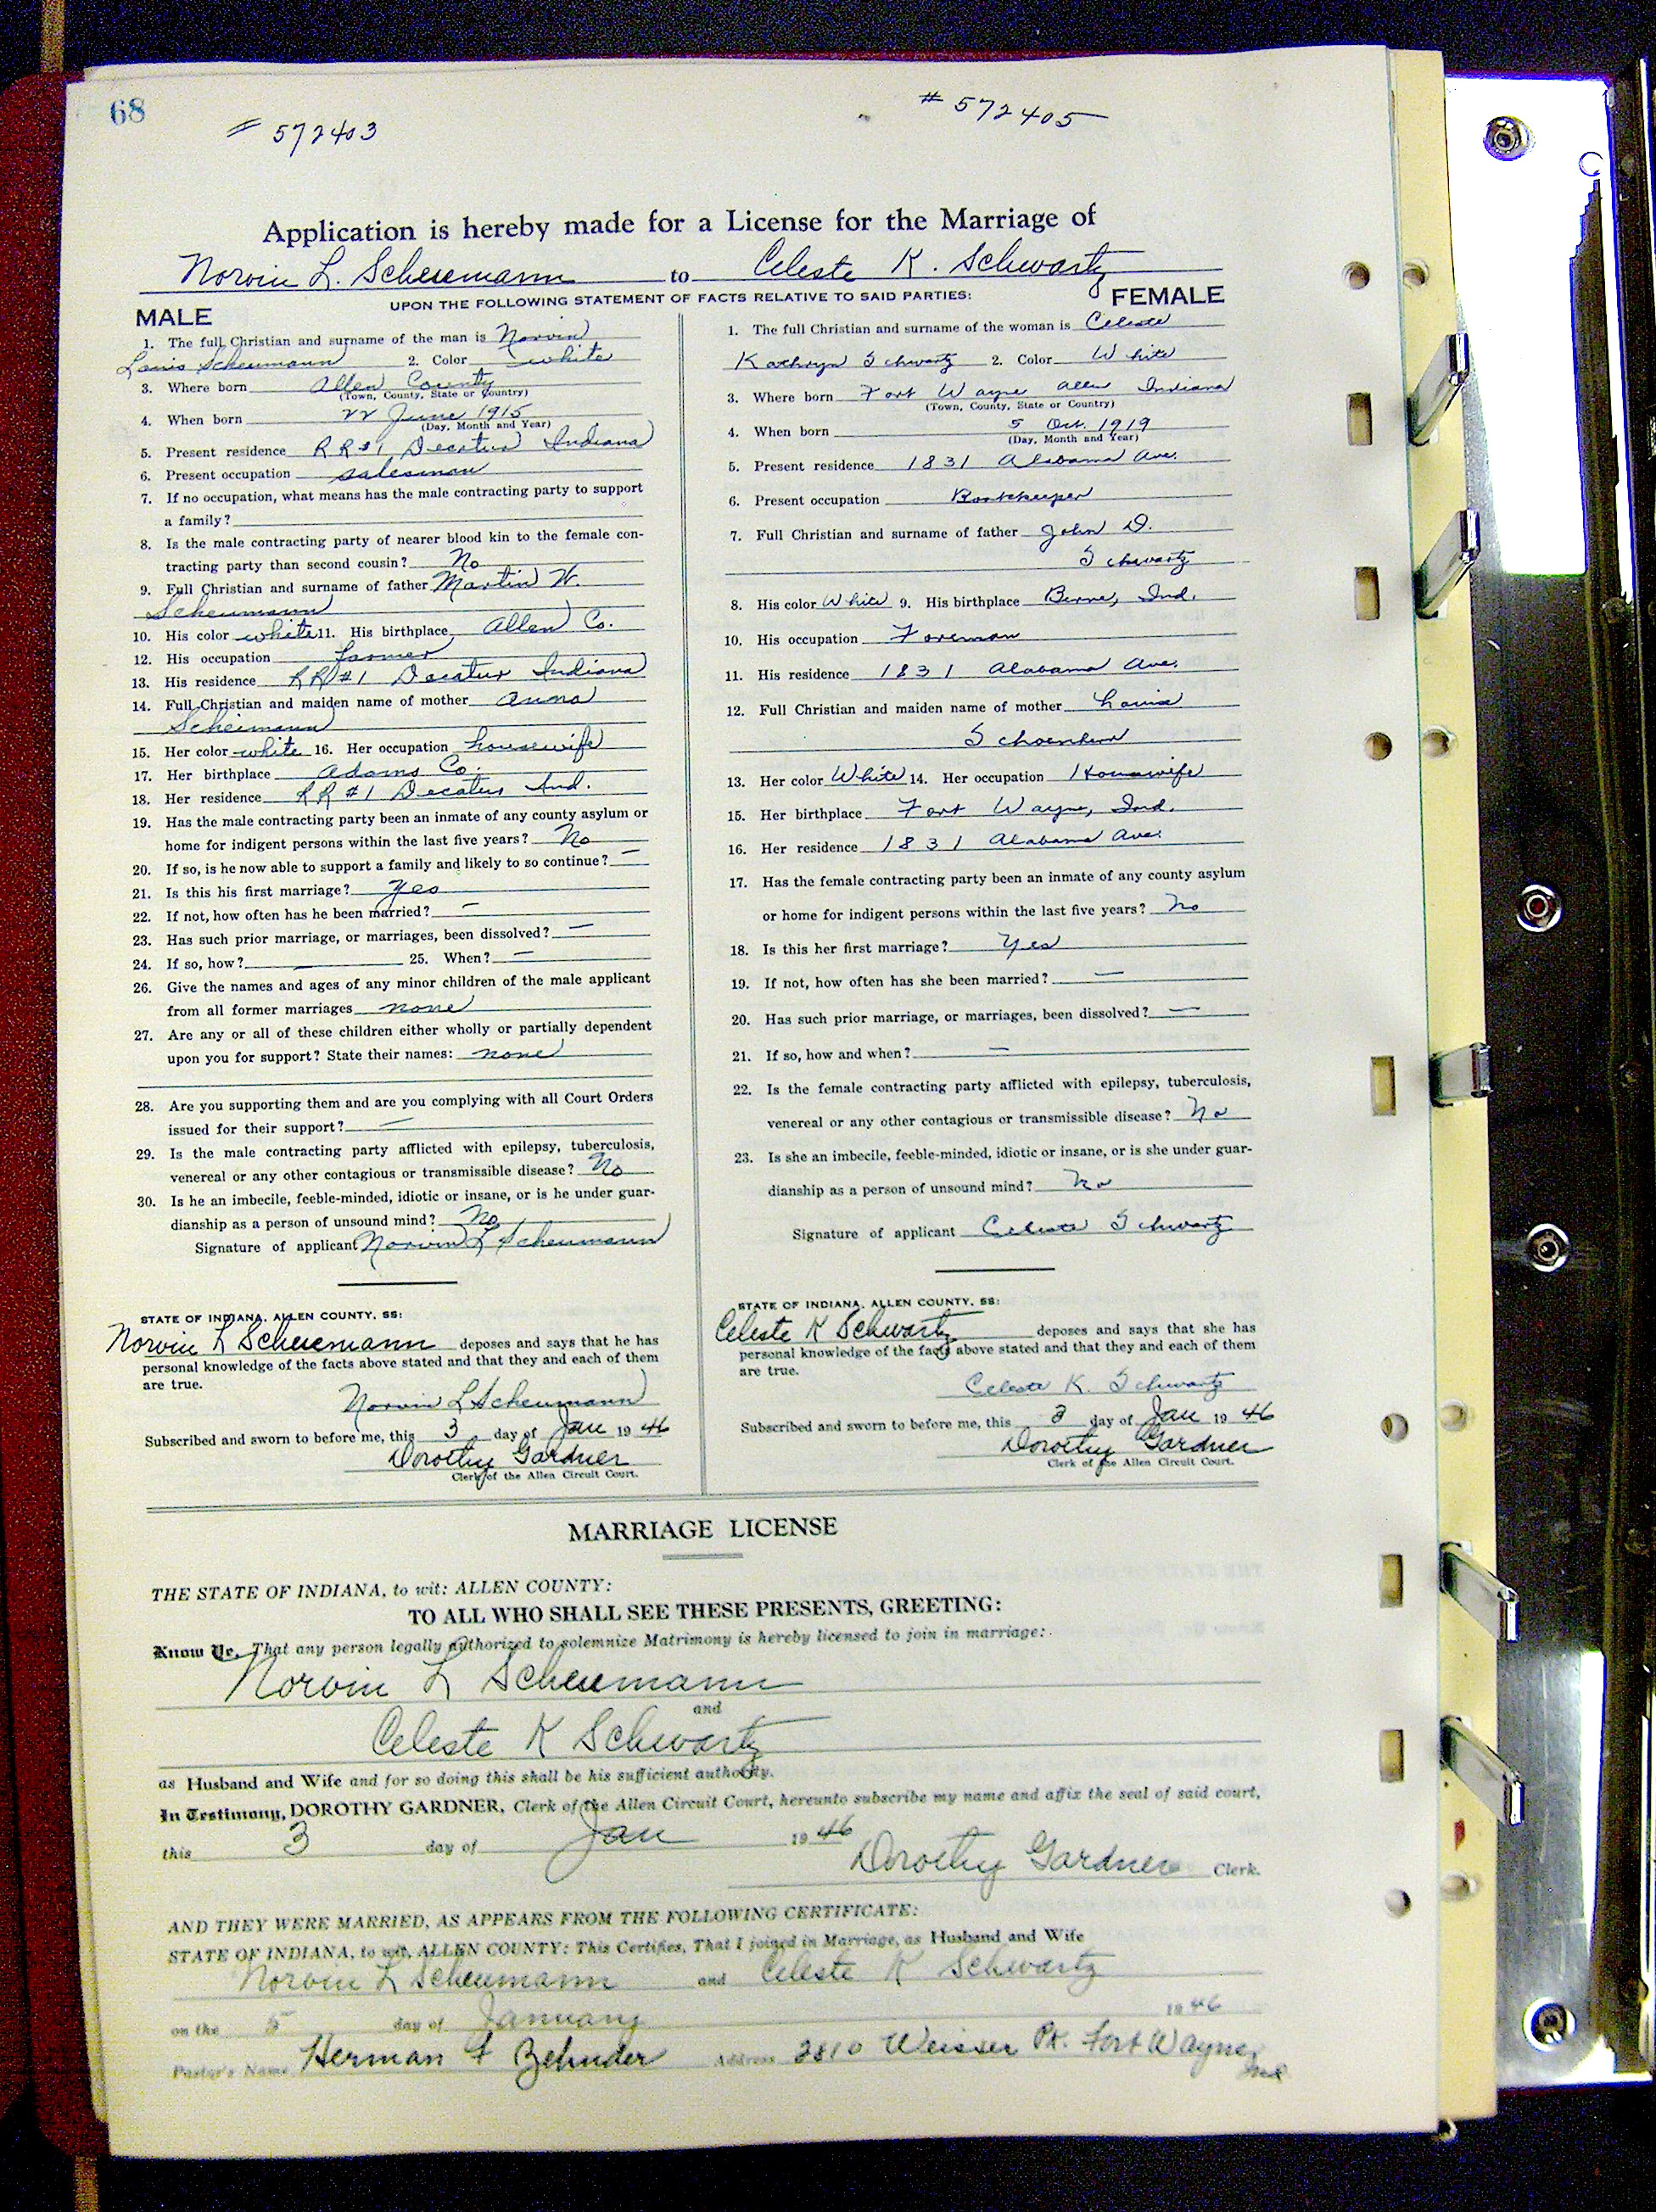 68
# 572403
# 572405
Application is hereby made for a License for the Marriage of
Norvin L. Scheumann to Celeste K. Schwartz
UPON THE FOLLOWING STATEMENT OF FACTS RELATIVE TO SAID PARTIES:
MALE
1. The full Christian and surname of the man is Norvin
Louis Scheumann 2. Color white
3. Where born Allen County
(Town, County, State or Country)
4. When born 22 June 1915
(Day, Month and Year)
5. Present residence RR#1 Decatur Indiana
6. Present occupation salesman
7. If no occupation, what means has the male contracting party to support
a family?
8. Is the male contracting party of nearer blood kin to the female con-
tracting party than second cousin? No
9. Full Christian and surname of father Martin W.
Scheumann
10. His color white 11. His birthplace Allen Co.
12. His occupation farmer
13. His residence RR#1 Decatur Indiana
14. Full Christian and maiden name of mother Anna
Scheimann
15. Her color white 16. Her occupation housewife
17. Her birthplace Adams Co.
18. Her residence RR#1 Decatur Ind.
19. Has the male contracting party been an inmate of any county asylum or
home for indigent persons within the last five years? No
20. If so, is he now able to support a family and likely to so continue? —
21. Is this his first marriage? Yes
22. If not, how often has he been married? —
23. Has such prior marriage, or marriages, been dissolved? —
24. If so, how? — 25. When? —
26. Give the names and ages of any minor children of the male applicant
from all former marriages none
27. Are any or all of these children either wholly or partially dependent
upon you for support? State their names: none
28. Are you supporting them and are you complying with all Court Orders
issued for their support? —
29. Is the male contracting party afflicted with epilepsy, tuberculosis,
venereal or any other contagious or transmissible disease? No
30. Is he an imbecile, feeble-minded, idiotic or insane, or is he under guar-
dianship as a person of unsound mind? No
Signature of applicant Norvin L Scheumann
STATE OF INDIANA, ALLEN COUNTY, SS:
Norvin L Scheumann deposes and says that he has
personal knowledge of the facts above stated and that they and each of them
are true.
Norvin L Scheumann
Subscribed and sworn to before me, this 3 day of Jan 19 46
Dorothy Gardner
Clerk of the Allen Circuit Court.
FEMALE
1. The full Christian and surname of the woman is Celeste
Kathryn Schwartz 2. Color White
3. Where born Fort Wayne Allen Indiana
(Town, County, State or Country)
4. When born 5 Oct. 1919
(Day, Month and Year)
5. Present residence 1831 Alabama Ave.
6. Present occupation Bookkeeper
7. Full Christian and surname of father John D.
Schwartz
8. His color White 9. His birthplace Berne, Ind.
10. His occupation Foreman
11. His residence 1831 Alabama Ave.
12. Full Christian and maiden name of mother
13. Her color White 14. Her occupation Housewife
15. Her birthplace Fort Wayne, Ind.
16. Her residence 1831 Alabama Ave.
17. Has the female contracting party been an inmate of any county asylum
or home for indigent persons within the last five years? No
18. Is this her first marriage? Yes
19. If not, how often has she been married? —
20. Has such prior marriage, or marriages, been dissolved? —
21. If so, how and when? —
22. Is the female contracting party afflicted with epilepsy, tuberculosis,
venereal or any other contagious or transmissible disease? No
23. Is she an imbecile, feeble-minded, idiotic or insane, or is she under guar-
dianship as a person of unsound mind? No
Signature of applicant Celeste Schwartz
STATE OF INDIANA, ALLEN COUNTY, SS:
Celeste K Schwartz deposes and says that she has
personal knowledge of the facts above stated and that they and each of them
are true.
Celeste K. Schwartz
Subscribed and sworn to before me, this 3 day of Jan 19 46
Dorothy Gardner
Clerk of the Allen Circuit Court.
MARRIAGE LICENSE
THE STATE OF INDIANA, to wit: ALLEN COUNTY:
TO ALL WHO SHALL SEE THESE PRESENTS, GREETING:
Know Ye, That any person legally authorized to solemnize Matrimony is hereby licensed to join in marriage:
Norvin L Scheumann
and
Celeste K Schwartz
as Husband and Wife and for so doing this shall be his sufficient authority.
In Testimony, DOROTHY GARDNER, Clerk of the Allen Circuit Court, hereunto subscribe my name and affix the seal of said court,
this 3 day of Jan 19 46
Dorothy Gardner Clerk.
AND THEY WERE MARRIED, AS APPEARS FROM THE FOLLOWING CERTIFICATE:
STATE OF INDIANA, to wit, ALLEN COUNTY: This Certifies, That I joined in Marriage, as Husband and Wife
Norvin L Scheumann and Celeste K Schwartz
on the 5 day of January 19 46
Pastor's Name Herman F Behnder Address 2810 Weisser Pk. Fort Wayne,
Ind